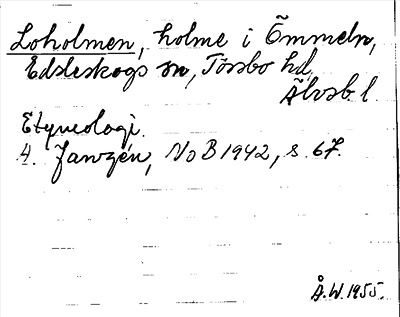 Loholmen, holme i Ömmeln,
Edsleskogs sn, Tössbo hd,
Älvsb. l
Etymologi.
A. Janzén, NoB 1942, s. 67.
Å.W. 1955.